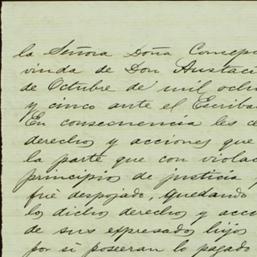 la Señora Doña Concep
viuda de Don Austaci
de Octubre de mil ocho
y cinco ante el Escriba
En consecuencia les c
derecho y acciones que
la parte que con viola
principios de justicia
fué despojado, quedando
los dichos derechos y acc
de sus expresados hijos
por si poseeran lo pagado